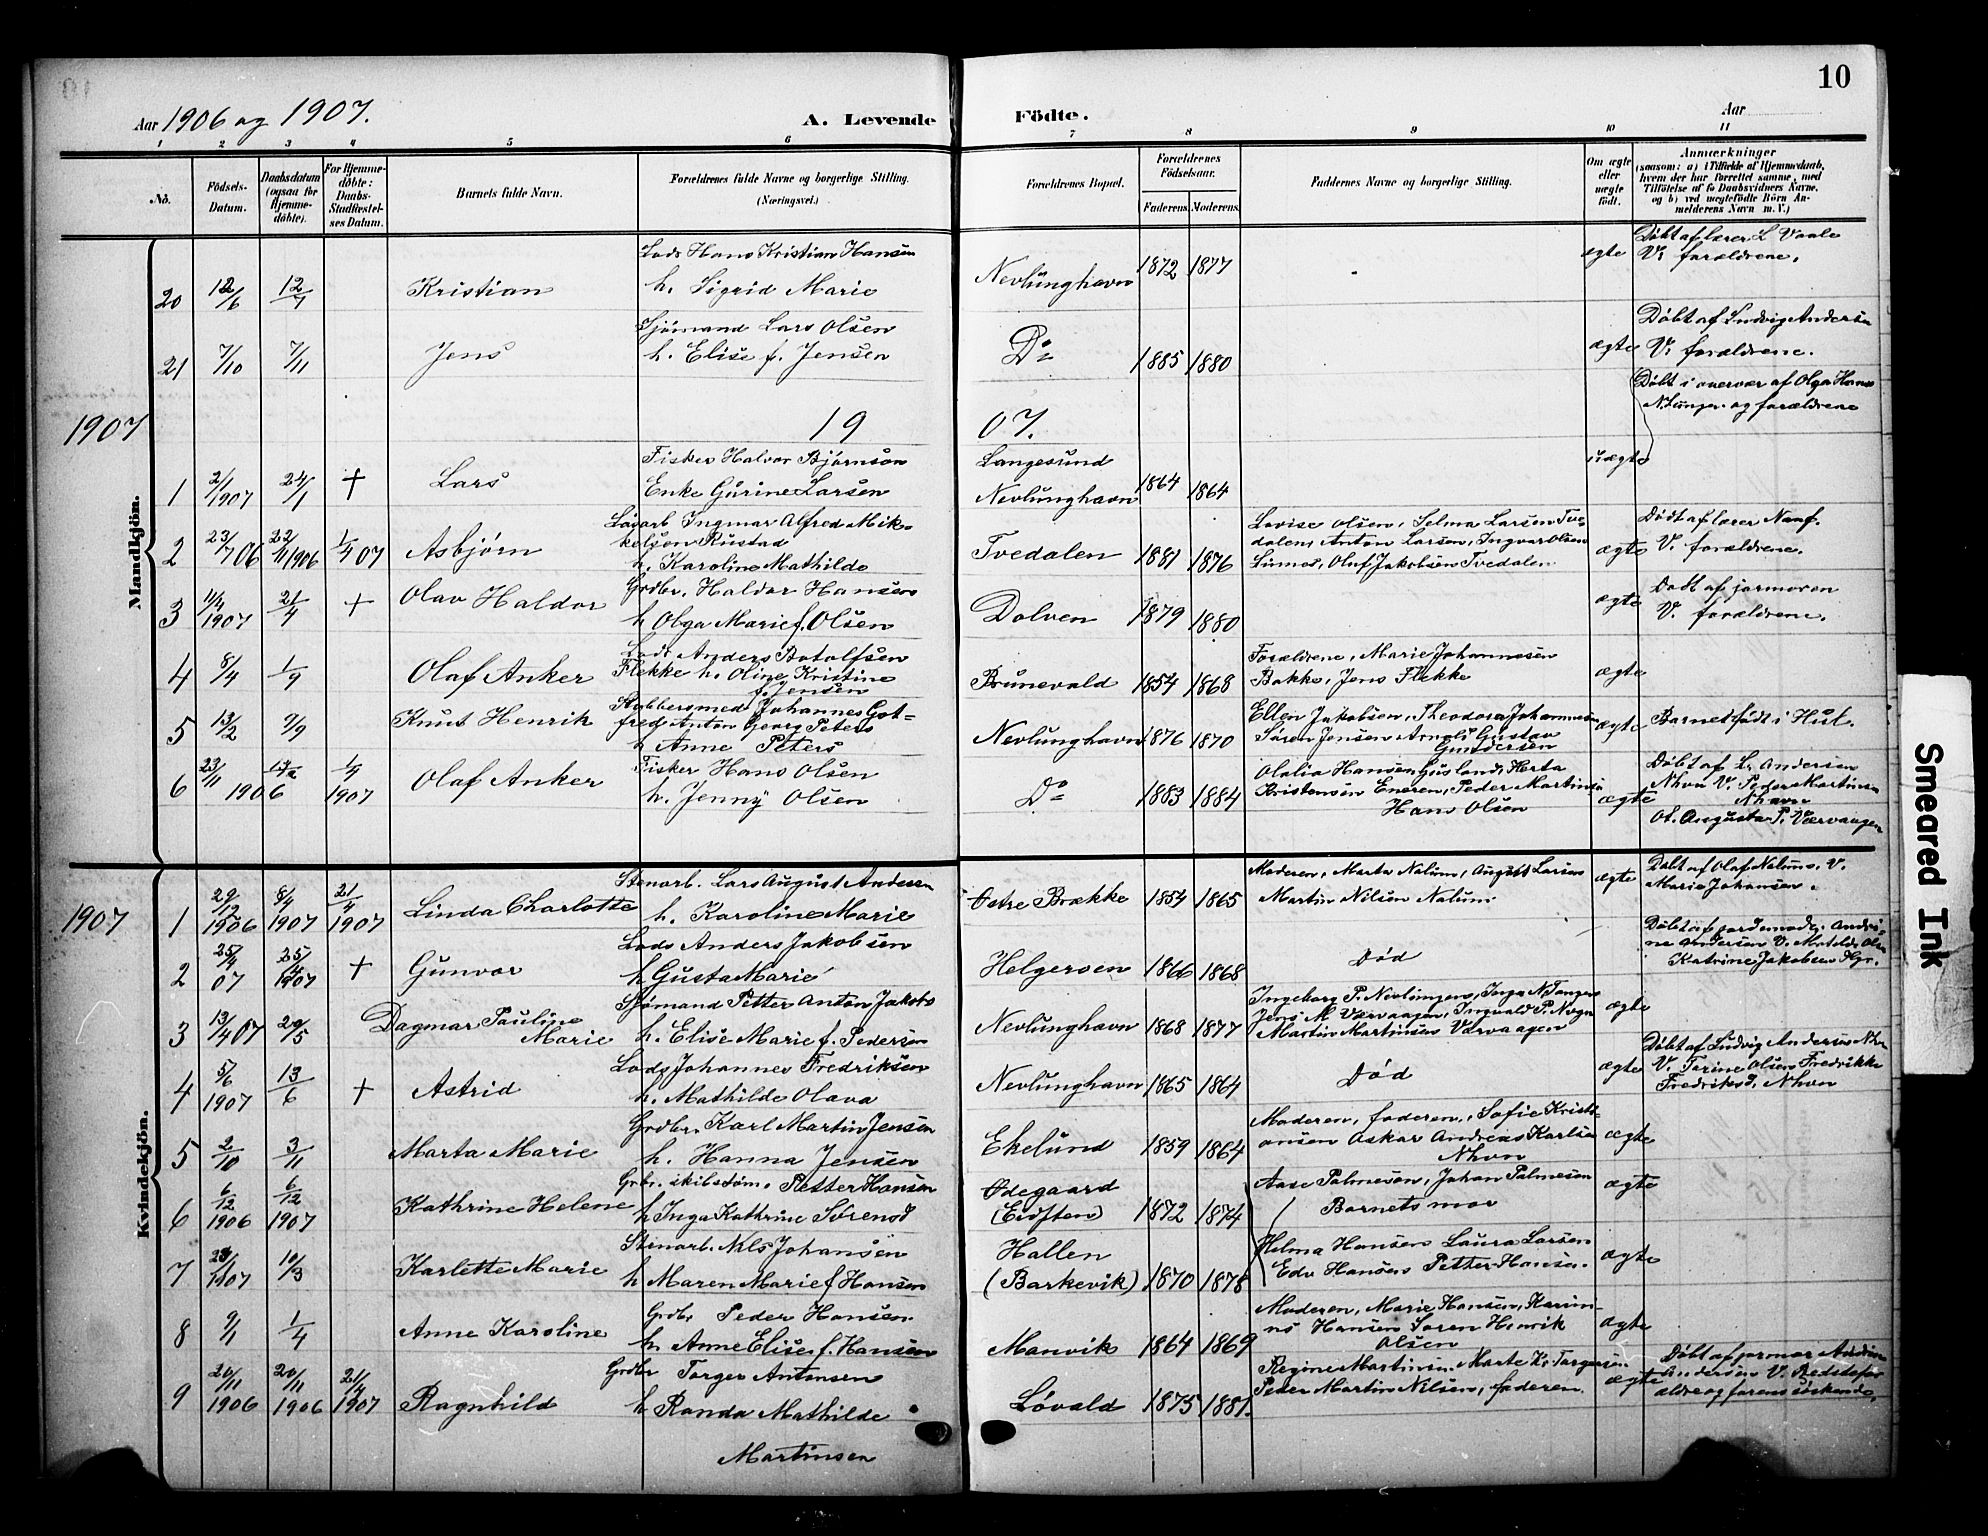 10
Aar 1906 og 1907.
A. Levende Födte.
Aar
1 2 3 4 5 6 7 8 9 10 11
No.
Födsels-Datum.
Daabsdatum (ogsaa for Hjemme-döbte).
For Hjemme-döbte: Daabs-Stadfæstel-ses Datum.
Barnets fulde Navn.
Forældrenes fulde Navne og borgerlige Stilling.
(Næringsvei.)
Forældrenes Bopæl.
Forældrenes Födselsaar.
Faderens. Moderens.
Faddernes Navne og borgerlige Stilling.
Om ægte eller uægte födt.
Anmærkninger
(saasom: a) i Tilfælde af Hjemmedaab, hvem der har forrettet samme, med Tilföielse af to Daabsvidners Navne, og b) ved uægtefödte Börn An-melderens Navn m. V.)
Mandkjön.
20 12/6 12/7 Kristian
Lods Hans Kristian Hansen
h. Sigrid Marie
Nevlunghavn 1872 1877 ægte
Döbt af lærer L Vaale
V. forældrene.
21 7/10 7/11 Jens
Sjömand Lars Olsen
h. Elise f. Jensen
Do 1885 1880 ægte
Döbt af Ludvig Andersen
V. forældrene.
1907
19 07.
Döbt i overvær af Olga Hans
og forældrene
1 2/1 1907 24/1 + Lars
Fisker Halvor Bjørnson
Enke Gurine Larsen
Langesund
Nevlunghavn 1864 1864 uægte
2 23/7 06 22/11 1906 1/4 07 Asbjørn
Ingmar Alfred Mik-
kelsen Rustad
h. Karoline Mathilde
Tvedalen 1881 1876
Lovise Olsen, Selma Larsen Tve-
dalen, Anton Larsen, Ingvar Olsen
Olaf Jakobsen Tvedalen
ægte
Döbt af lærer
V. forældrene.
3 11/4 1907 21/4 + Olav Haldor
Grdbr. Haldor Hansen
h Olga Marie f. Olsen
Dolven 1879 1880 ægte
Döbt af jormoren
V. forældrene.
4 8/4 1/9 Olaf Anker
Lods Anders Botolfsen
Flekke h. Oline Kristine
f. Jensen
Brunevald 1854 1868
Forældrene, Marie Johannesen
Bakke, Jens Flekke
ægte
5 13/2 9/9 Knut Henrik
Johannes Got=
fred Anton Georg Peters
h Anne Peters
Nevlunghavn 1876 1870
Ellen Jakobsen, Theodora Johannesen
Søren Jensen Arnold Gustav
Gundersen
ægte
Barnet födt i Hul.
6 23/11 1906 1/4 1907 Olaf Anker
Fisker Hans Olsen
h. Jenny Olsen
Do 1883 1884
Olalia Hansen Gusland, Herta
Kristensen Eneren, Peder Martinsen
Hans Olsen
ægte
Döbt af L. Andersen
Nhvn V. Peder Martinsen
Nhavn
Ot. Augusta P. Værvaagen
1907
Kvindekjön.
1 29/12 1906 8/4 1907 21/4 1907 Linda Charlotte
Stenarb. Lars August Andersen
h. Karoline Marie
Østre Brække 1854 1865
Moderen, Marta Nalum, August Larsen
Martin Nilsen Nalum
ægte
Döbt af Olaf Nalum. V.
Marie Johansen.
2 25/4 07 25/4 1907 + Gunvor
Lods Anders Jakobsen
h Gusta Marie
Helgeroen 1866 1868
Død
Döbt af jordemodr. Andri-
ne Andersen V. Matilde Olsen
Katrine Jakobsen Hgr.
3 13/4 07 29/5 Dagmar Pauline
Marie
Sjömand Petter Anton Jakobs
h. Elise Marie f. Pedersen
Nevlunghavn 1868 1877
Ingeborg P. Nevlungen, Inga N. Tangen
Jens M Værvaagen, Ingvald P. Nvgn
Martin Martinsen Værvaagen
ægte
4 5/6 1907 13/6 + Astrid
Lods Johannes Fredriksen
h. Mathilde Olava
Nevlunghavn 1865 1864
Død
ægte
Döbt af Ludvig Andersen Nhvn
V. Torine Olsen Fredrikke
Fredriksd. Nhvn
5 2/10 3/11 Marta Marie
Grdbr. Karl Martin Jensen
h. Hanna Jensen
Ekelund 1859 1864
Moderen, faderen, Sofie Kristi-
ansen Oskar Andreas Karlsen
Nhvn
ægte
6 6/12 1906 6/12 1907 Kathrine Helene
Grbr. skibstöm. Petter Hansen
h Inga Kathrine Sørensd
Ødegaard
(Eidften) 1872 1874
Aase Palmesen, Johan Palmesen
Barnets mor
ægte
7 23/1 1907 10/3 Karlette Marie
Stenarb. Nils Johansen
h Maren Marie f Hansen
Hallen
(Barkevik) 1870 1878
Helma Hansen Laura Larsen
Edv Hansen Petter Hansen.
ægte
8 9/1 1/4 Anne Karoline
Grdbr Peder Hansen
h Anne Elise f. Hansen
Manvik 1864 1869
Moderen, Marie Hansen, Karin-
us Hansen Søren Henrik
Olsen
ægte
9 20/11 1906 20/11 1906 21/4 1907 Ragnhild
Grdbr Torger Antonsen
h Randa Mathilde
Martinsen
Løvald 1875 1881.
Regine Martinsen. Marte K. Torgersen
Peder Martin Nilsen, faderen.
ægte
Döbt af jormor Andrine
Andersen V. Bedstefor
ældre og farens söskende.
Smeared Ink